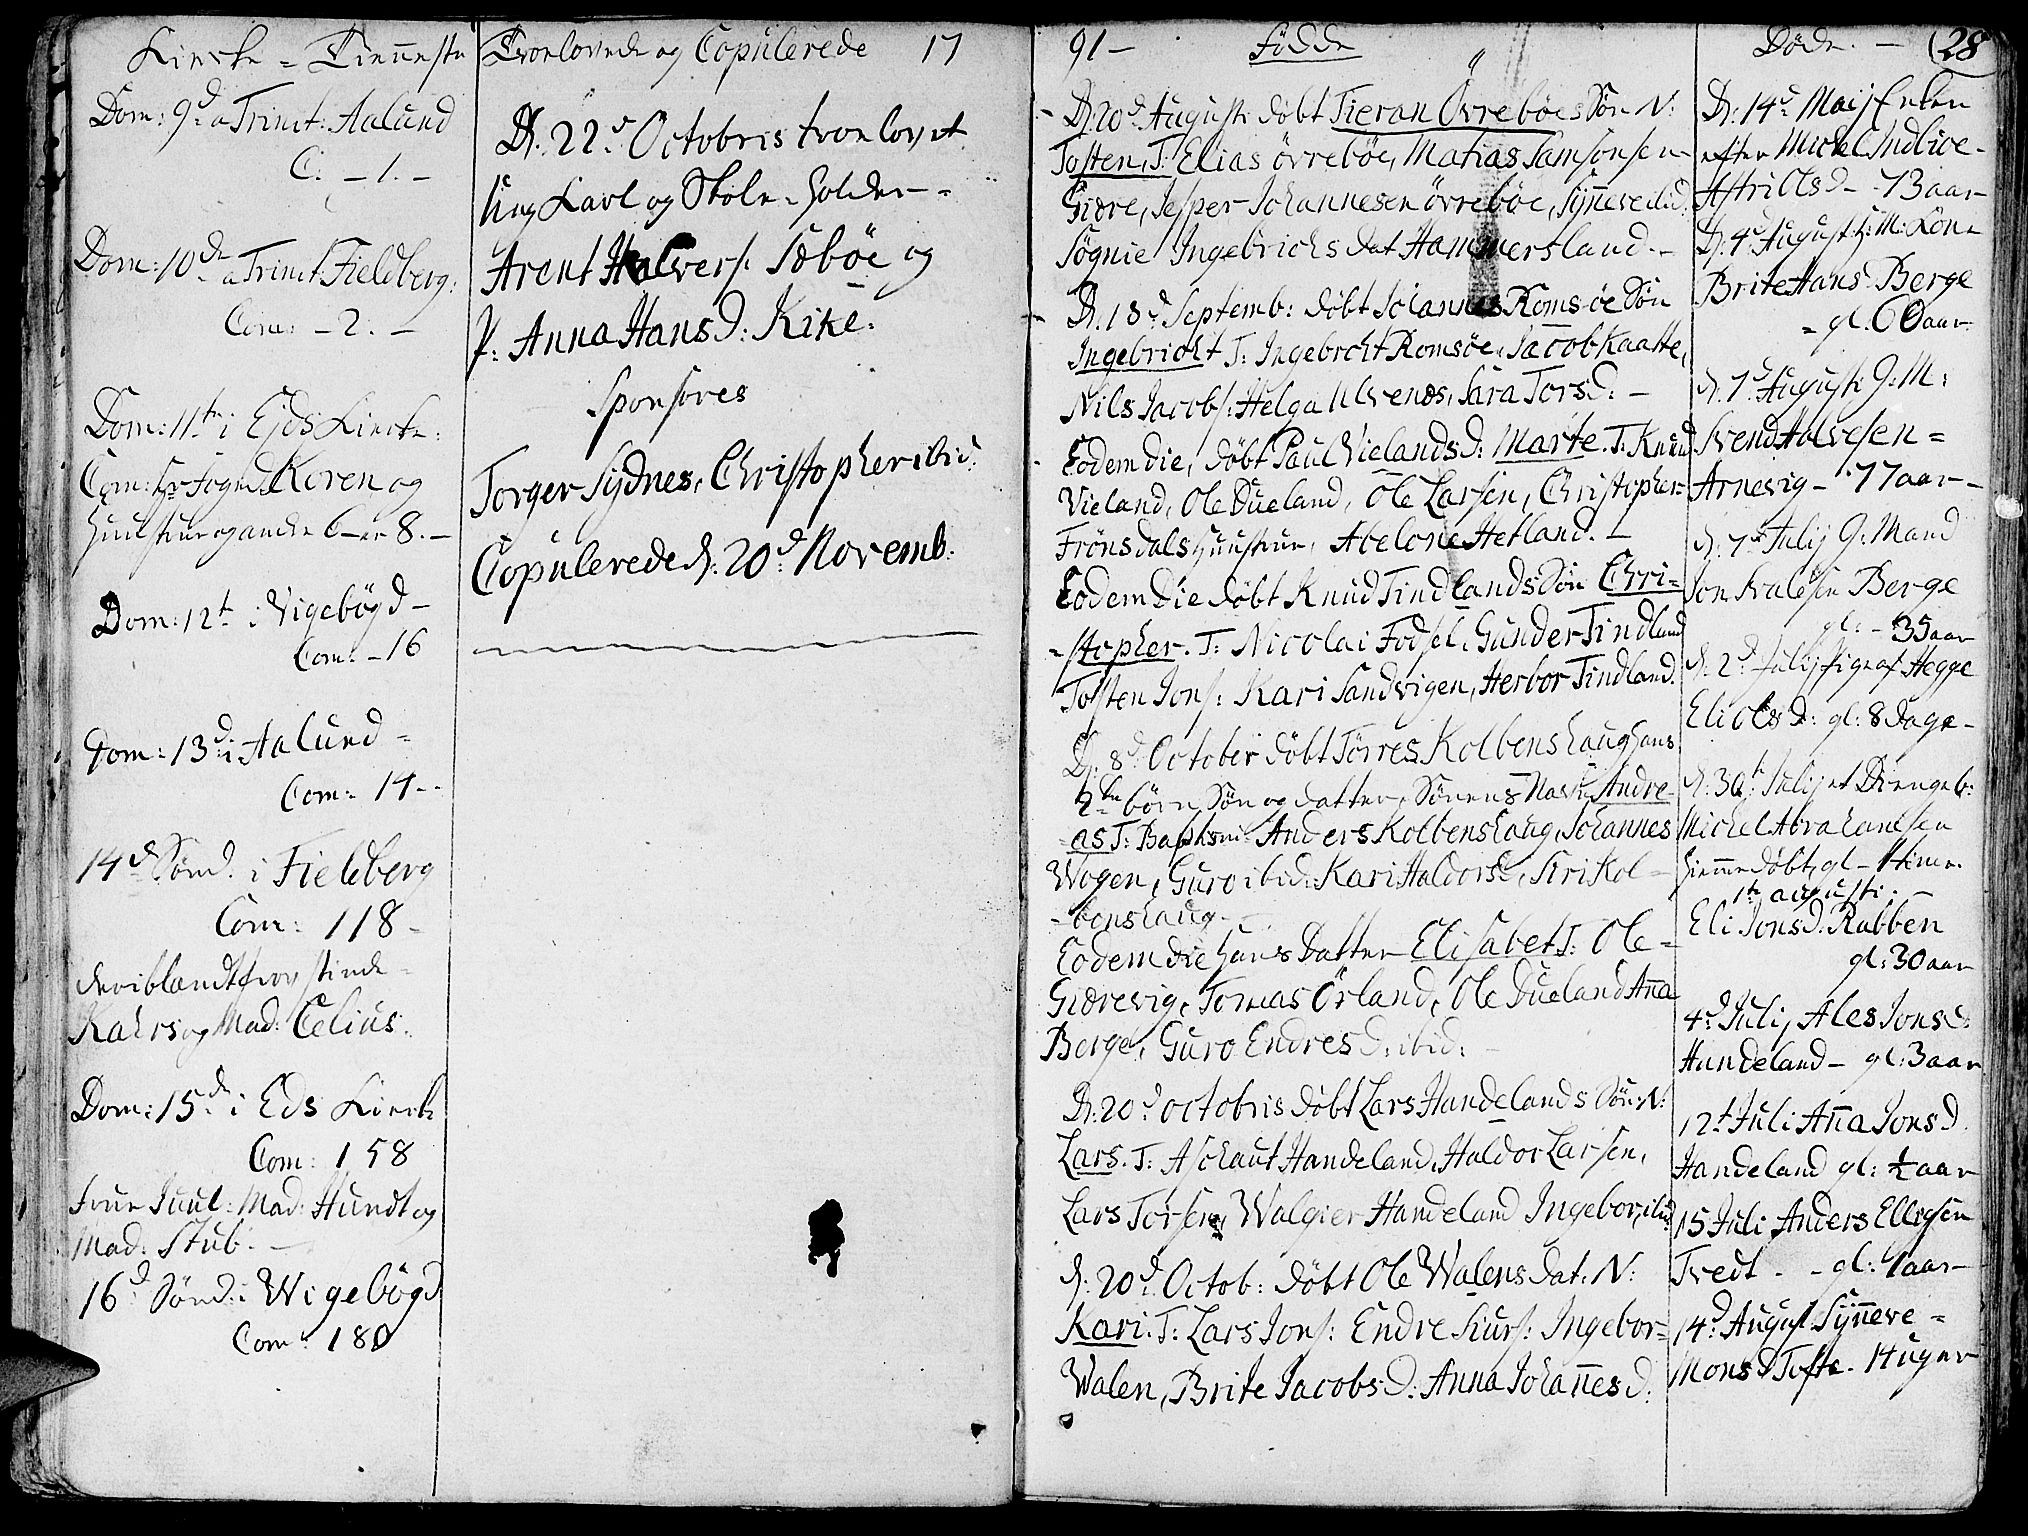 Kirke = Tienneste
Dom: 9d a Trinit: Aalund
C. - 1. -
Dom: 10de a Trinit Fieldberg:
Com: - 2. -
Dom: 11te i Eids Kircke:
Com: Hr Fogd Koren og
6 - er 8. -
Dom: 12t i Vigebøgd -
Com: - 16
Dom: 13d i Aalund -
Com: 14 -
14de Sønd. i Fieldberg
Com: 118 -
deriblandt
Kahrs og Mad: Celius.
Dom: 15de i Eds Kircke
Com: 158
Frue Juul: Mad: Hundt og
Mad: Stub. -
16d Sønd: i Wigebøgd
Com: 180
Trolovede og Copulerede 17
D. 22d Octobris trolovet
Ung Karl og Skole-holder -
Arent Halvers. Sæbøe og
P: Anna Hans D: Kike:
Sponsores
Torger Sydnes, Christopher ibid:
Copulerede d. 20d Novemb:
91 - Fødde
D. 20d Augusti døbt Fieran Øvrebøes Søn N:
Tosten, T: Elias Øvrebøe, Matias Samsonsen
Giøre, Jesper Johannesen Øvrebøe, Sÿneve ibid:
Søgnie Ingebrichs dat Hammersland. -
D. 18d Septemb: døbt Johannes Romsøe Søn
Ingebricht T: Ingebrcht Romsøe, Jacob Kaatte,
Nils Jacobs: Helga Ulvenøs, Sara Tors D: -
Eodem die, døbt Paul Vielands D: Marte. T: Knud
Vieland, Ole Dueland, Ole Larsen, Christopher
Frønsdals Huustrue, Abelone Hetland. -
Eodem Die døbt Knud Tindlands Søn Chri=
=stopher. T: Nicolai Fodsel, Gunder Tindland
Tosten Jons: Kari Sandvigen, Herbor Tindland.
D. 8d October døbt Tørres Kolbenshaug hans
2de børn Søn og datter, Sønens Navn Andre=
=as T: Baptismi Anders Kolbenshaug, Johannes
Wogen, Guro ibid: Kari Haldorsd, Siri Kol=
=benshaug -
Eodem die hans Datter Elisabet T: Ole -
Giørevig, Tomas Ørland, Ole Dueland Ana
Berge, Guro Endres D: ibid: -
D. 20d octobris døbt Lars Handelands Søn: N:
Lars. T: Aschaut Handeland, Haldor Larsen,
Lars Torsen, Walgier Handeland Ingebor, ibid
d: 20d Octob: døbt Ole Walens dat: N:
Kari. T: Lars Jons: Endre Siurs: Ingebor=
Walen, Brite Jacobs D: Anna Johanes D:
Døde. - 28
D: 14d Maij Enken
efter Michel Indlioe -
Astri Olsd - 73 aar
D: 4d August: g: M: Kone
Brite Hans Berge
- gl. 60 aar
d. 7d Augusti G: M:
Svend Halvesen =
Arnevig - 77 aar -
d. 7d Julij G: Mand
Berge
gl: - 35 aar
d. 2d Julij Pige af Hegge
Eli Ols D: gl: 8 Dage -
d: 30t Julij et Drengeb:
Michel Abrahamsen
hiemmedøbt, gl - 1 time
1te augusti: -
Eli Jonsd. Rabben
gl: 30 aar
4d Julij Ales Jonsd:
Handeland - gl: 3 aar
12t Juli Ana Jonsd.
Handeland gl: ½ aar
15 Juli Anders Ellersen
Tvedt - - gl: 1 aar -
14d August Sÿneve =
Mons D Tofte. 14 uger